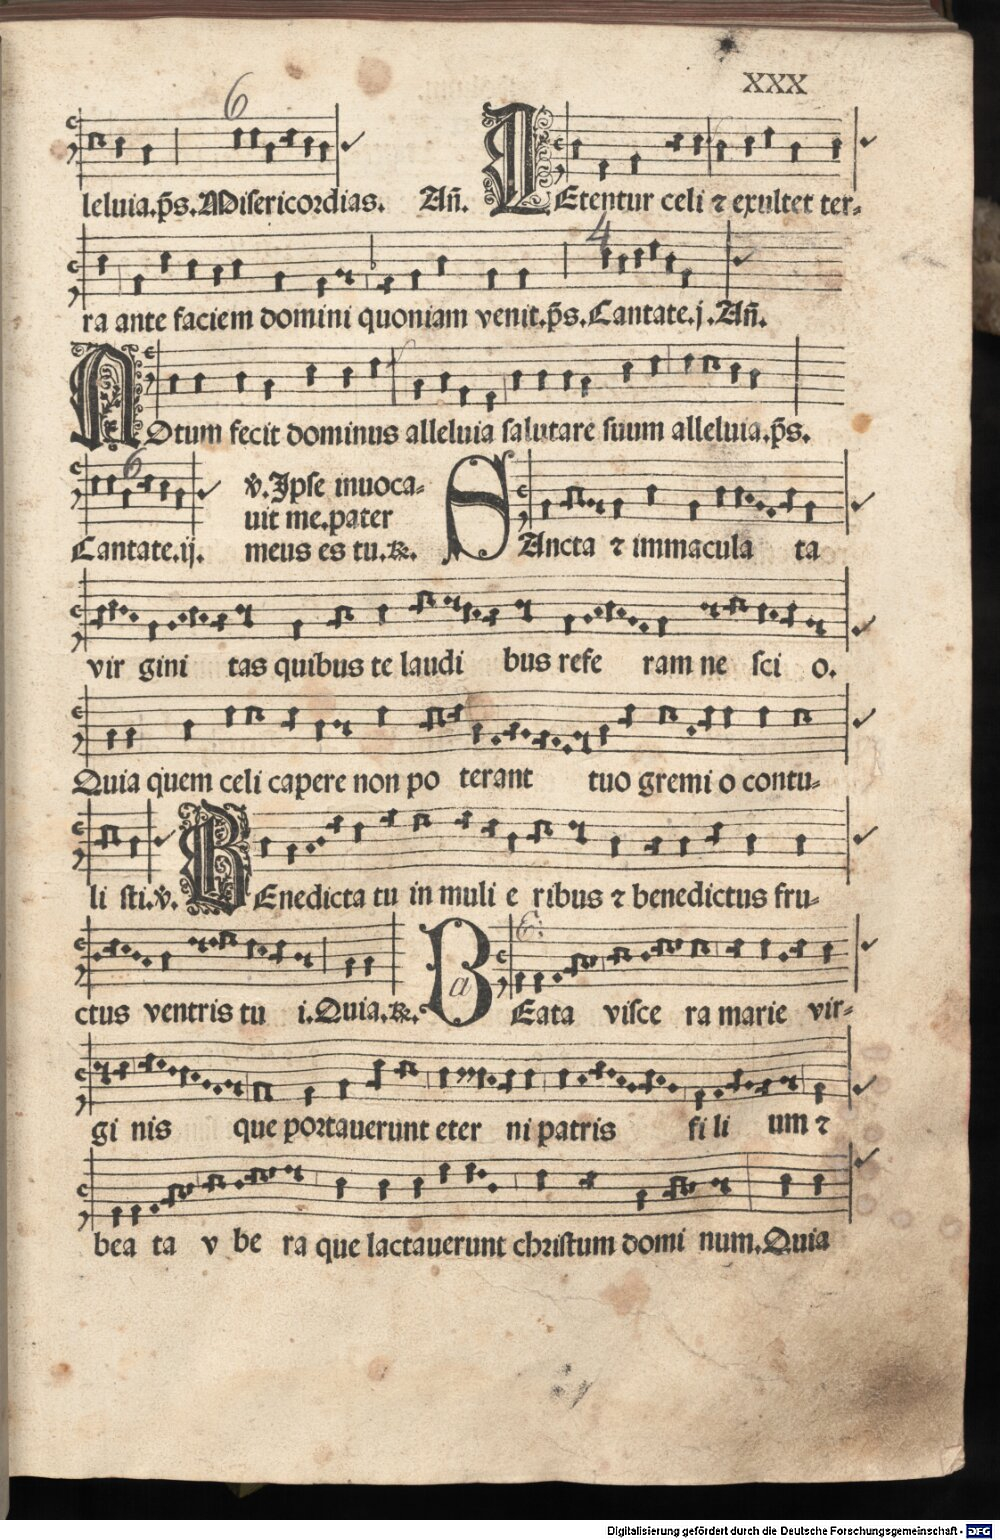 XXX
6
leluia.p̄s.Misericordias. Añ. LEtentur celi ⁊ exultet ter-
4
ra ante faciem domini quoniam venit.p̄s.Cantate.j.Añ.
NOtum fecit dominus alleluia salutare suum alleluia.p̄s.
6
Cantate.ij. v̇.Ipse inuoca-
uit me.pater
meus es tu.℞. SAncta ⁊ immacula ta
vir gini tas quibus te laudi bus refe ram ne sci o.
Quia quem celi capere non po terant tuo gremi o contu-
li sti.v̇. BEnedicta tu in muli e ribus ⁊ benedictus fru-
6:
ctus ventris tu i.Quia.℞. BEata visce ra marie vir-
a
gi nis que portauerunt eter ni patris fi li um ⁊
bea ta v be ra que lactauerunt christum domi num.Quia
Digitalisierung gefördert durch die Deutsche Forschungsgemeinschaft - DFG